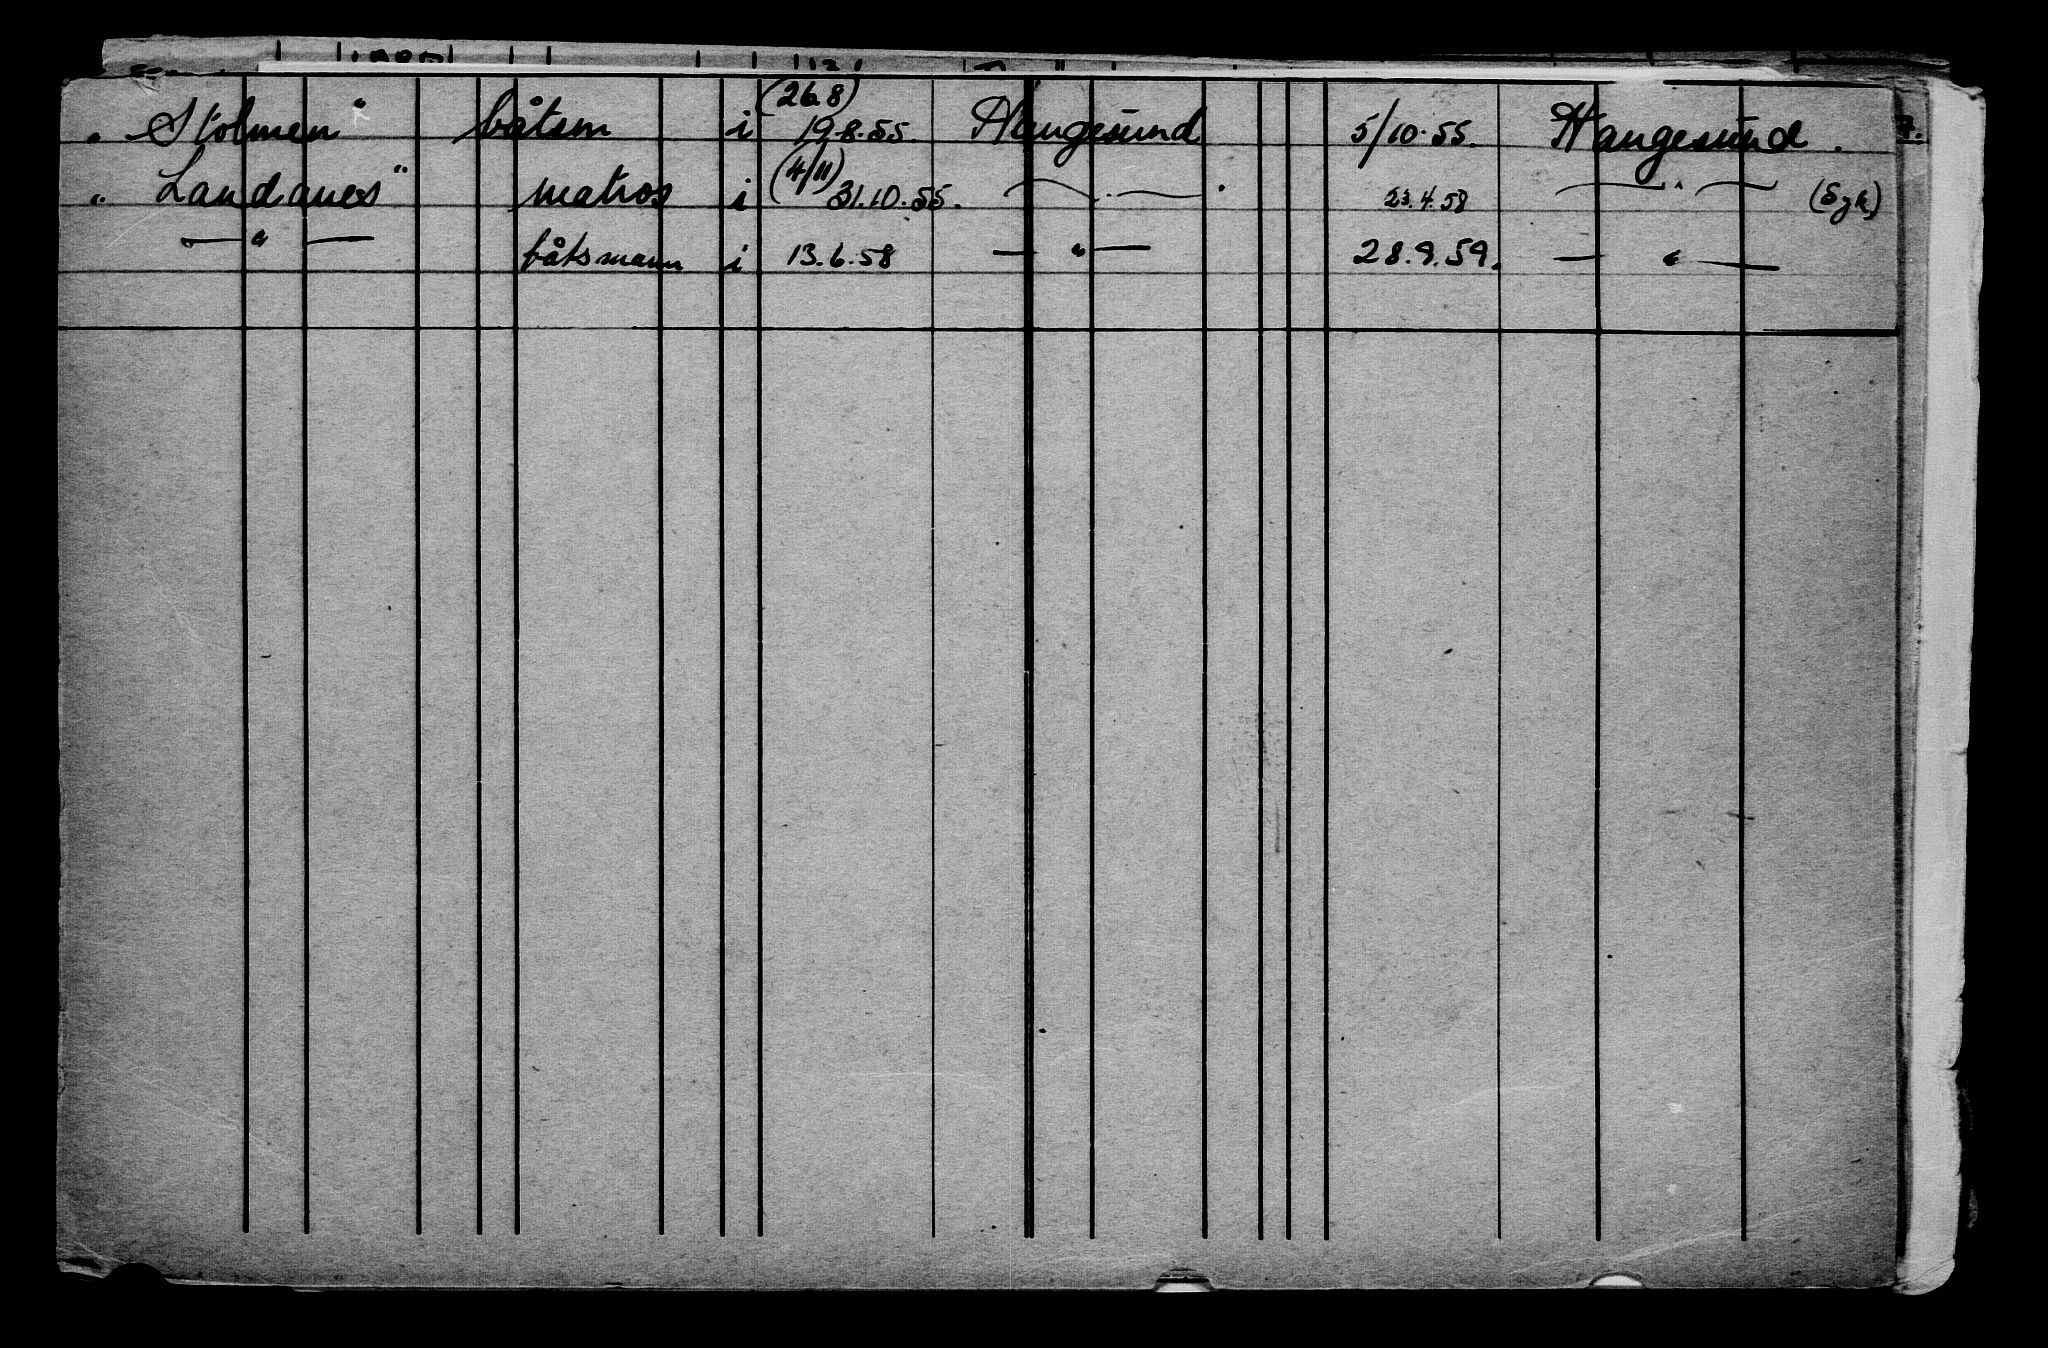 „ Stolmen “ båtsm i (26.8) 19-8.55. Haugesund 5/10.55. Haugesund .
„ Landanes “ matros i (4/11) 31.10.55. — „ — . 23.4.58 — „ — (Syk)
— „ — båtsmann i 13.6.58 — „ — 28.9.59. — „ —